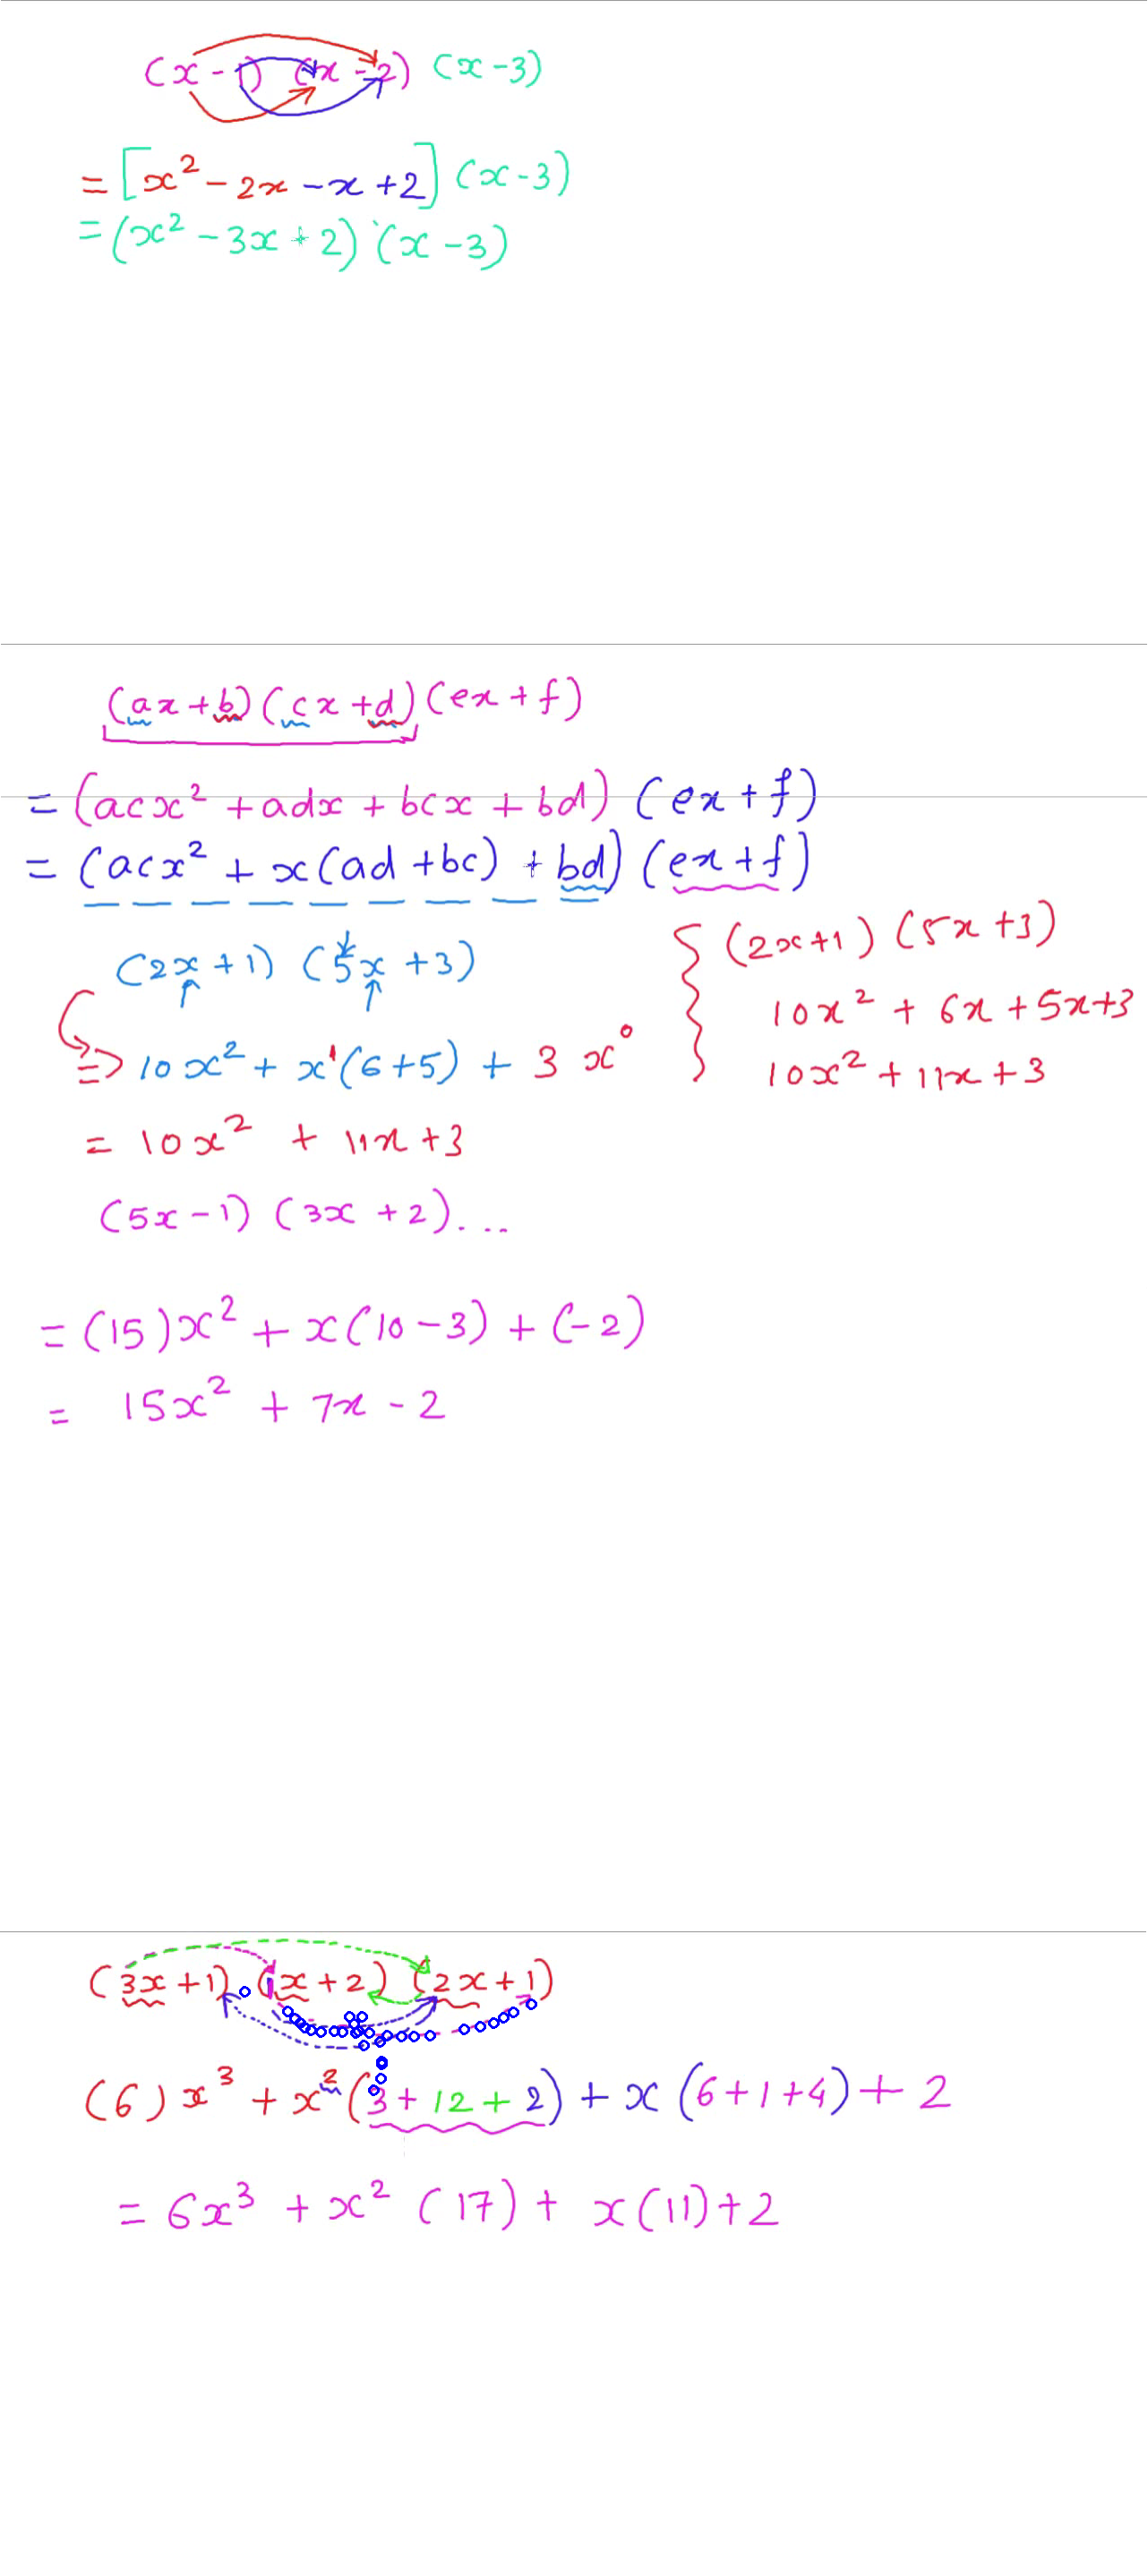 (x - 1) (x - 2) (x - 3)
= [x² - 2x - x + 2] (x - 3)
= (x² - 3x + 2) (x - 3)
(ax + b) (cx + d) (ex + f)
= (acx² + adx + bcx + bd) (ex + f)
= (acx² + x(ad + bc) + bd) (ex + f)
(2x + 1) (5x + 3)
=> 10x² + x¹(6 + 5) + 3 x⁰
= 10x² + 11x + 3
{ (2x + 1) (5x + 3)
10x² + 6x + 5x + 3
10x² + 11x + 3
(5x - 1) (3x + 2)...
= (15)x² + x(10 - 3) + (-2)
= 15x² + 7x - 2
(3x + 1) . (1x + 2) (2x + 1)
(6) x³ + x² (3 + 12 + 2) + x (6 + 1 + 4) + 2
= 6x³ + x² (17) + x(11) + 2